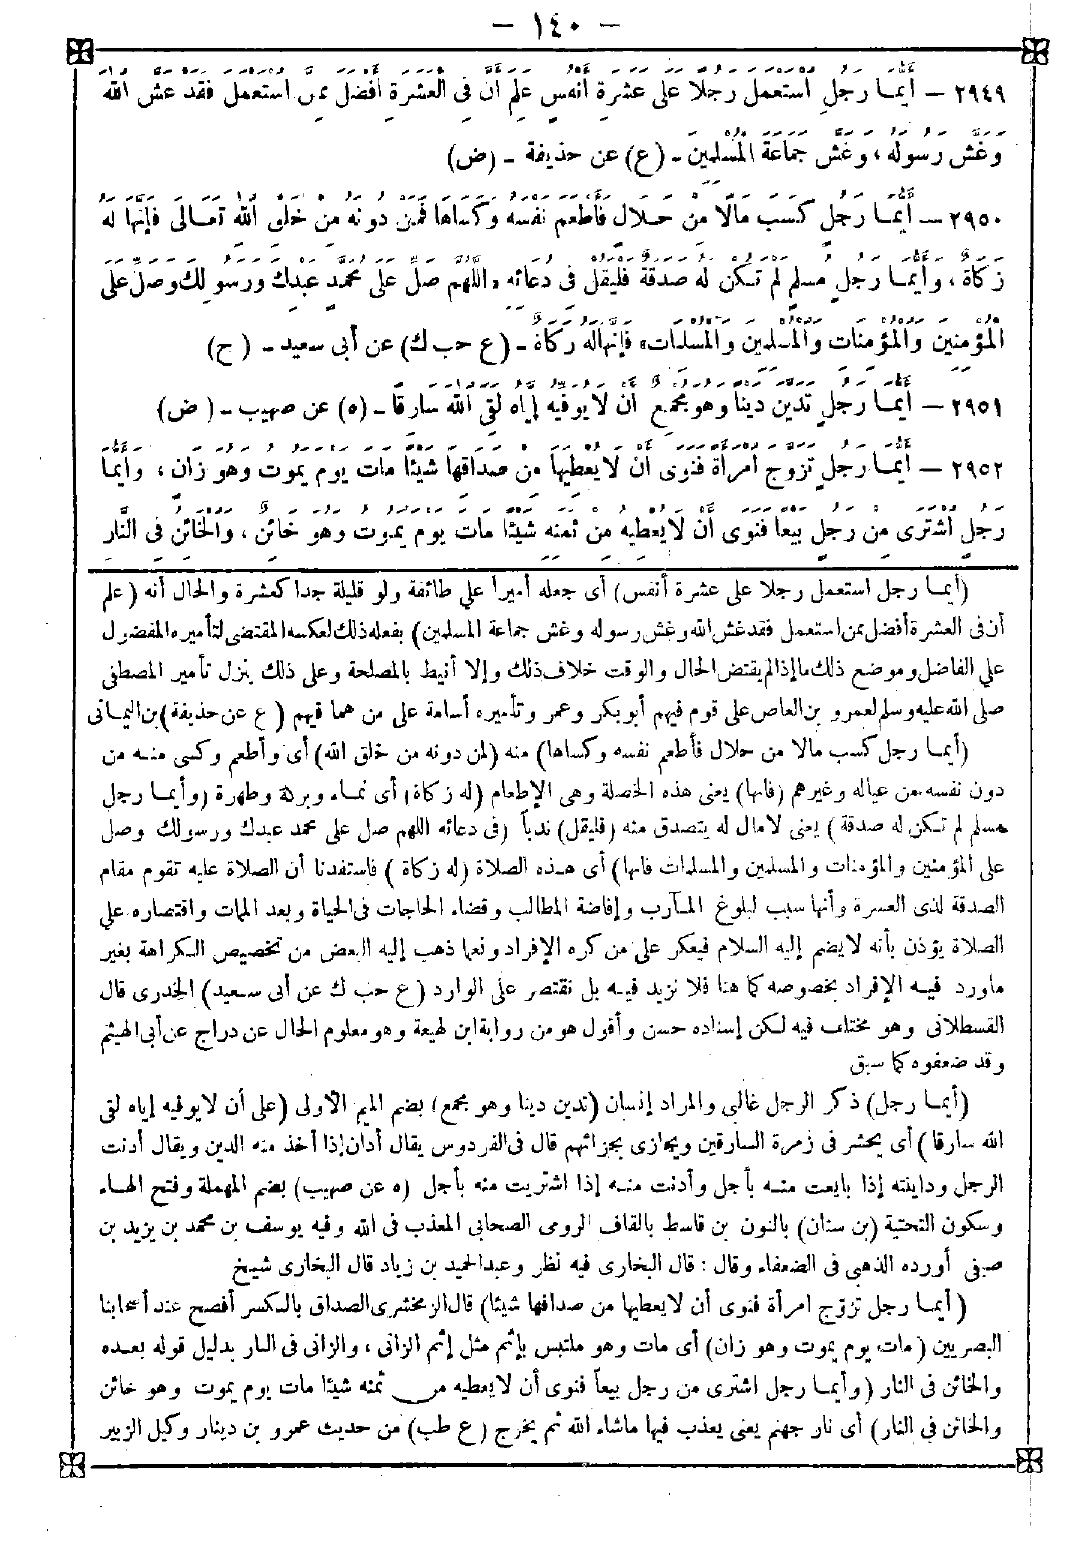 - ١٤٠ -
٢٩٤٩ - أَيُّمَا رَجُلٍ اسْتَعْمَلَ رَجُلًا عَلَى عَشَرَةِ أَنْفُسٍ عَلِمَ أَنَّ فِي الْعَشَرَةِ أَفْضَلَ مِمَّنِ اسْتَعْمَلَ فَقَدْ غَشَّ اللهَ
وَغَشَّ رَسُولَهُ، وَغَشَّ جَمَاعَةَ الْمُسْلِمِينَ - (ع) عن حذيفة - (ض)
٢٩٥٠ - أَيُّمَا رَجُلٍ كَسَبَ مَالًا مِنْ حَلَالٍ فَأَطْعَمَ نَفْسَهُ وَكَسَاهَا فَمَنْ دُونَهُ مِنْ خَلْقِ اللهِ تَعَالَى فَإِنَّهَا لَهُ
زَكَاةٌ، وَأَيُّمَا رَجُلٍ مُسْلِمٍ لَمْ تَكُنْ لَهُ صَدَقَةٌ فَلْيَقُلْ فِي دُعَائِهِ «اللَّهُمَّ صَلِّ عَلَى مُحَمَّدٍ عَبْدِكَ وَرَسُولِكَ وَصَلِّ عَلَى
الْمُؤْمِنِينَ وَالْمُؤْمِنَاتِ وَالْمُسْلِمِينَ وَالْمُسْلِمَاتِ» فَإِنَّهَا لَهُ زَكَاةٌ - (ع حب ك) عن أبى سعيد - (ح)
٢٩٥١ - أَيُّمَا رَجُلٍ تَدَيَّنَ دَيْنًا وَهُوَ مُجْمِعٌ أَنْ لَا يُوَفِّيَهُ إِيَّاهُ لَقِيَ اللهَ سَارِقًا - (ه) عن صهيب - (ض)
٢٩٥٢ - أَيُّمَا رَجُلٍ تَزَوَّجَ امْرَأَةً فَنَوَى أَنْ لَا يُعْطِيَهَا مِنْ صَدَاقِهَا شَيْئًا مَاتَ يَوْمَ يَمُوتُ وَهُوَ زَانٍ، وَأَيُّمَا
رَجُلٍ اشْتَرَى مِنْ رَجُلٍ بَيْعًا فَنَوَى أَنْ لَا يُعْطِيَهُ مِنْ ثَمَنِهِ شَيْئًا مَاتَ يَوْمَ يَمُوتُ وَهُوَ خَائِنٌ، وَالْخَائِنُ فِي النَّارِ
(أيما رجل استعمل رجلا على عشرة أنفس) أى جعله أميرا على طائفة ولو قليلة جدا كعشرة والحال أنه (علم
أن فى العشرة أفضل ممن استعمل فقد غش الله وغش رسوله وغش جماعة المسلمين) بفعله ذلك لعكسه المقتضى لتأميره المفضول
على الفاضل وموضع ذلك ما إذا لم يقتض الحال والوقت خلاف ذلك وإلا أنيط بالمصلحة وعلى ذلك ينزل تأمير المصطفى
صلى الله عليه وسلم لعمرو بن العاص على قوم فيهم أبو بكر وعمر وتأميره أسامة على من هما فيهم (ع عن حذيفة) بن اليمانى
(أيما رجل كسب مالا من حلال فأطعم نفسه وكساها) منه (لمن دونه من خلق الله) أى وأطعم وكسى منه من
دون نفسه من عياله وغيرهم (فإنها) يعنى هذه الخصلة وهى الإطعام (له زكاة) أى نماء وبركة وطهرة (وأيما رجل
مسلم لم تكن له صدقة) يعنى لا مال له يتصدق منه (فليقل) ندباً (فى دعائه اللهم صل على محمد عبدك ورسولك وصل
على المؤمنين والمؤمنات والمسلمين والمسلمات فإنها) أى هذه الصلاة (له زكاة) فاستفدنا أن الصلاة عليه تقوم مقام
الصدقة لذى العسرة وأنها سبب لبلوغ المآرب وإفاضة المطالب وقضاء الحاجات فى الحياة وبعد الممات واقتصاره على
الصلاة يؤذن بأنه لا يضم إليه السلام فيعكر على من كره الإفراد ونعما ذهب إليه البعض من تخصيص الكراهة بغير
ماورد فيه الإفراد بخصوصه كما هنا فلا نزيد فيه بل نقتصر على الوارد (ع حب ك عن أبى سعيد) الخدرى قال
القسطلانى وهو مختلف فيه لكن إسناده حسن وأقول هو من رواية ابن لهيعة وهو معلوم الحال عن دراج عن أبى الهيثم
وقد ضعفوه كما سبق
(أيما رجل) ذكر الرجل غالبى والمراد إنسان (تدين دينا وهو مجمع) بضم الميم الأولى (على أن لا يوفيه إياه لقى
الله سارقا) أى يحشر فى زمرة السارقين ويجازى بجزائهم قال فى الفردوس يقال أدان إذا أخذ منه الدين ويقال أدنت
الرجل وداينته إذا بايعت منه بأجل وأدنت منه إذا اشتريت منه بأجل (ه عن صهيب) بضم المهملة وفتح الهاء
وسكون التحتية (بن سنان) بالنون بن قاسط بالقاف الرومى الصحابى المعذب فى الله وفيه يوسف بن محمد بن يزيد بن
صيفى أورده الذهبى فى الضعفاء وقال: قال البخارى فيه نظر وعبد الحميد بن زياد قال البخارى شيخ
(أيما رجل تزوج امرأة فنوى أن لا يعطيها من صداقها شيئا) قال الزمخشرى الصداق بالكسر أفصح عند أصحابنا
البصريين (مات يوم يموت وهو زان) أى مات وهو ملتبس بإثم مثل إثم الزانى، والزانى فى النار بدليل قوله بعده
والخائن فى النار (وأيما رجل اشترى من رجل بيعاً فنوى أن لا يعطيه من ثمنه شيئا مات يوم يموت وهو خائن
والخائن فى النار) أى نار جهنم يعنى يعذب فيها ماشاء الله ثم يخرج (ع طب) من حديث عمرو بن دينار وكيل الزبير